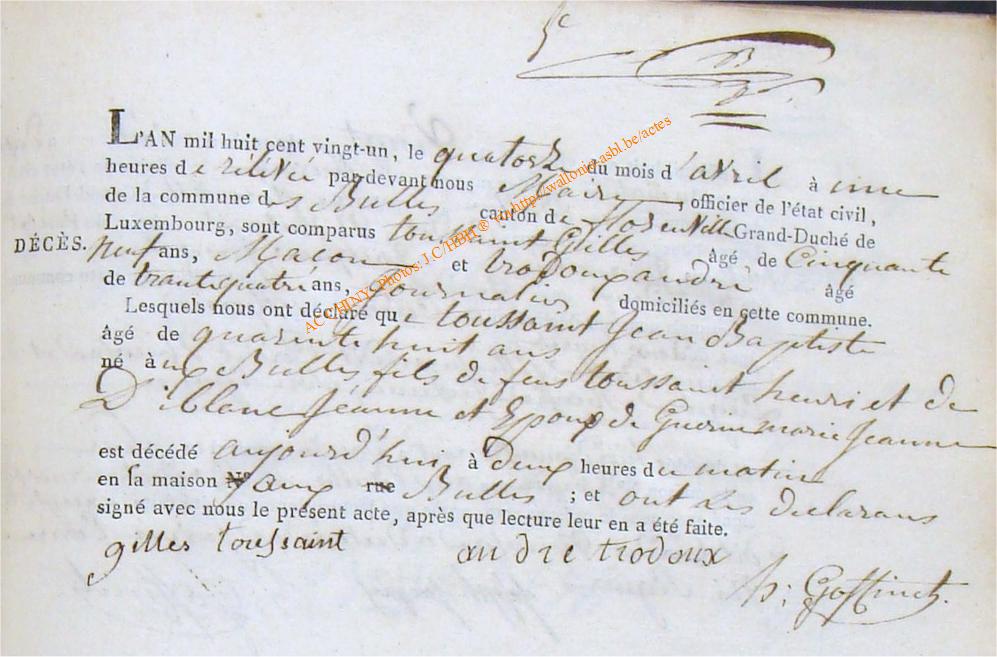 5e
L'AN mil huit cent vingt-un, le quatorze du mois d'avril à une
heures de rélévée par-devant nous Maire, officier de l'état civil,
de la commune des Bulles canton de florenville Grand-Duché de
Luxembourg, sont comparus toussaint Gilles âgé de Cinquante
DÉCÈS.
neuf ans, Maçon et trodoux andré âgé
de trantequatre ans, Journalier domiciliés en cette commune.
Lesquels nous ont déclaré que toussaint Jean Baptiste
âgé de quarente huit ans
né à aux Bulles fils de feus toussaint henri et de
Jeanne et Epoux de Guerin marie Jeanne
est décédé aujourd'hui à deux heures du matin
en sa maison N° aux rue Bulles ; et ont les declarans
signé avec nous le présent acte, après que lecture leur en a été faite.
gilles toussaint andre trodoux
h: Goffinet.
ACCHINY - Photos: J.C/HBH © Visit http://wallonia-asbl.be/actes